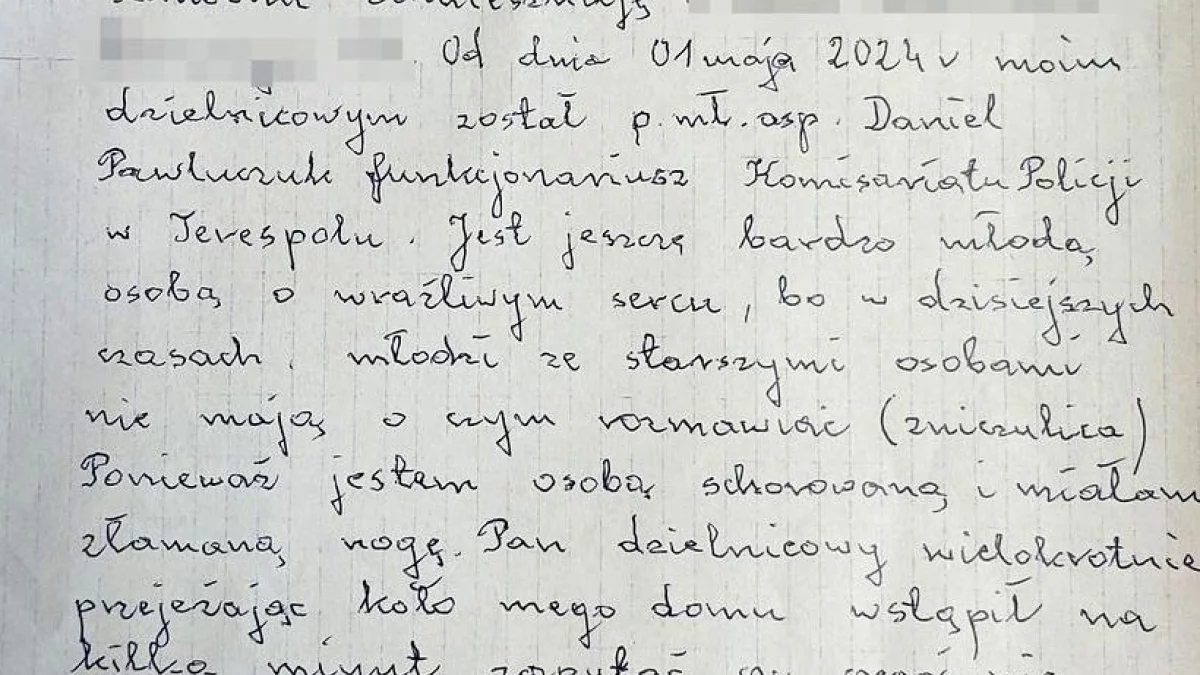 Od dnia 01 maja 2024 r moim
dzielnicowym został p. mł. asp. Daniel
Pawluczuk funkcjonariusz Komisariatu Policji
w Terespolu. Jest jeszczę bardzo młodą
osobą o wrażliwym sercu, bo w dzisiejszych
czasach. młodzi ze starszymi osobami
nie mają o czym rozmawiać (znieczulica)
Ponieważ jestem osobą schorowaną i miałam
złamaną nogę. Pan dzielnicowy wielokrotnie
przejeżając koło mego domu wstąpił na
kilka minut zapytać